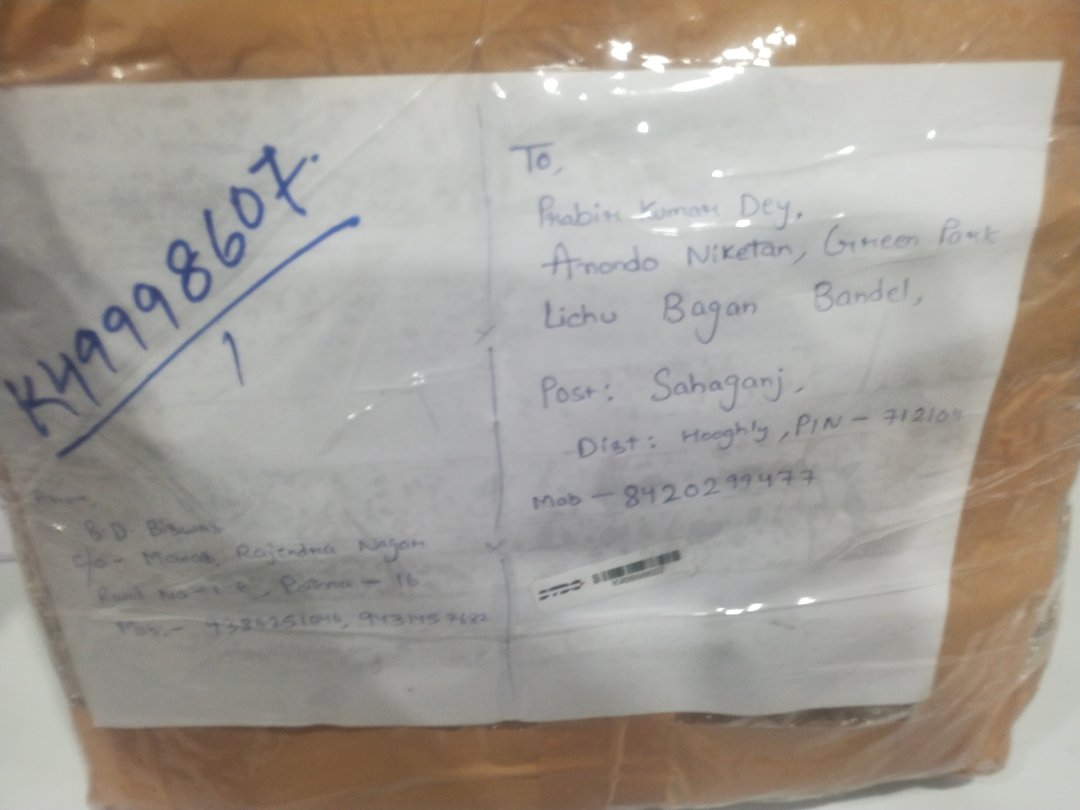 K49998607.
1
To,
Prabir Kumar Dey.
Anondo Niketan, Green Park
Lichu Bagan Bandel,
Post: Sahaganj,
Dist: Hooghly, PIN - 712104
Mob - 8420299477
From,
B.D. Biswas
C/o - Rajendra Nagar
Road No - Patna - 16
Mob. -
DTDC